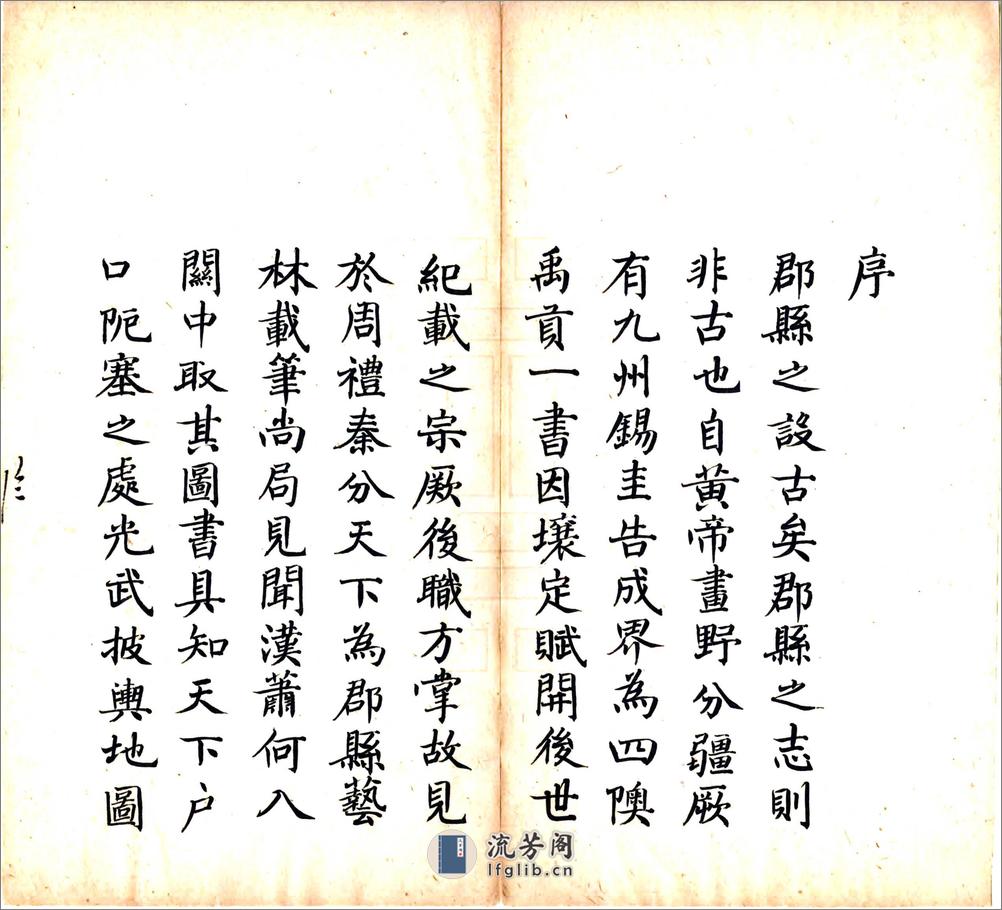 序
郡縣之設古矣郡縣之志則
非古也自黃帝畫野分疆厥
有九州錫圭告成界為四隩
禹貢一書因壤定賦開後世
紀載之宗厥後職方掌故見
於周禮秦分天下為郡縣藝
林載筆尚局見聞漢蕭何入
關中取其圖書具知天下户
口阨塞之處光武披輿地圖
流芳阁
lfglib.cn